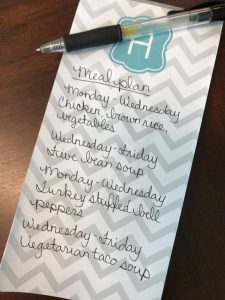 H
Meal plan
Monday - Wednesday
Chicken, brown rice,
vegetables
Wednesday - Friday
Five bean soup
Monday - Wednesday
Turkey stuffed bell
peppers
Wednesday - Friday
Vegetarian taco soup